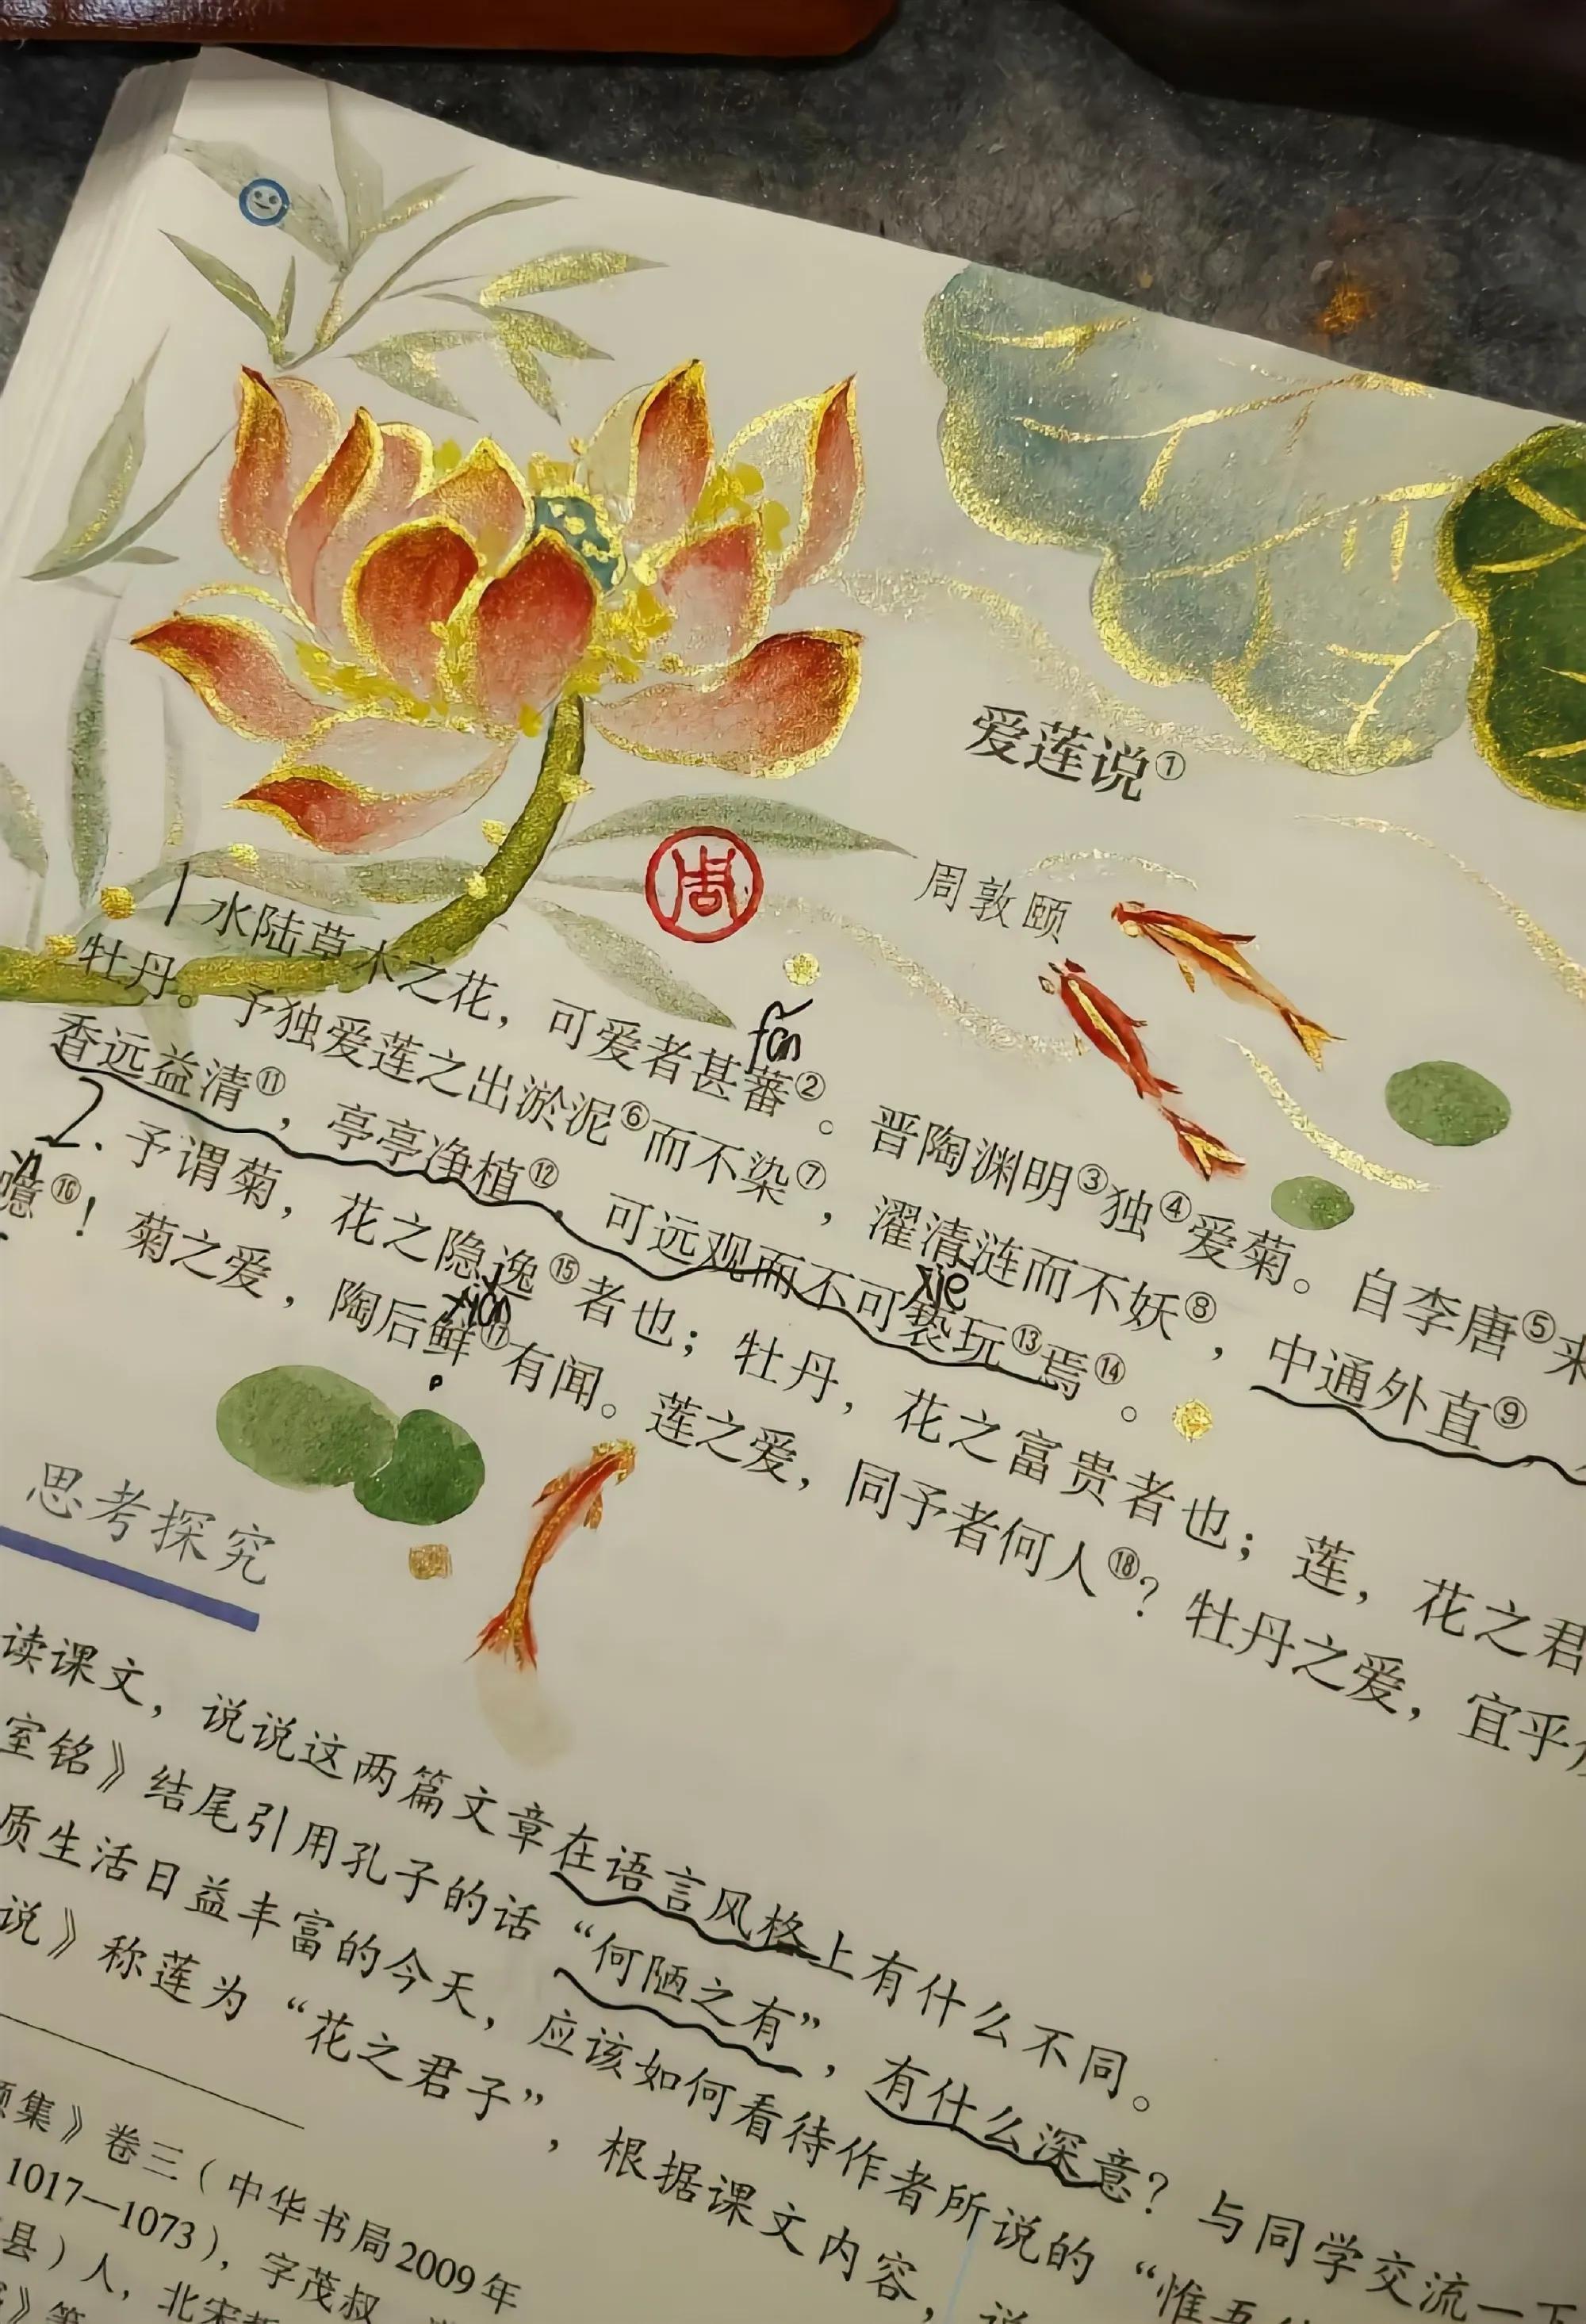 爱莲说①
周
周敦颐
fán
1 水陆草木之花，可爱者甚蕃②。晋陶渊明③独④爱菊。自李唐⑤来
牡丹。予独爱莲之出淤泥⑥而不染⑦，濯清涟而不妖⑧，中通外直⑨
xiè
香远益清⑪，亭亭净植⑫，可远观而不可亵玩⑬焉⑭。
2. 予谓菊，花之隐逸⑮者也；牡丹，花之富贵者也；莲，花之君
xiǎn
噫⑯！菊之爱，陶后鲜⑰有闻。莲之爱，同予者何人⑱？牡丹之爱，宜乎
思考探究
读课文，说说这两篇文章在语言风格上有什么不同。
室铭》结尾引用孔子的话“何陋之有”，有什么深意？与同学交流一下
质生活日益丰富的今天，应该如何看待作者所说的“惟吾
说》称莲为“花之君子”，根据课文内容，说
颐集》卷三（中华书局2009年
1017—1073），字茂叔
县）人，北宋